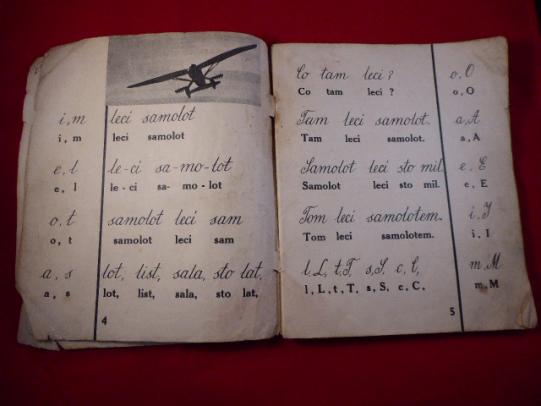 i, m leci samolot
i, m leci samolot
e, l le-ci sa-mo-lot
e, l le-ci sa-mo-lot
o, t samolot leci sam
o, t samolot leci sam
a, s lot, list, sala, sto lat,
a, s lot, list, sala, sto lat,
4
Co tam leci? o, O
Co tam leci? o, O
Tam leci samolot. a, A
Tam leci samolot. a, A
Samolot leci sto mil. e, E
Samolot leci sto mil. e, E
Tom leci samolotem. i, I
Tom leci samolotem. i, I
l, L, t, T s, S, c, C, m, M
l, L, t, T, s, S, c, C. m, M
5